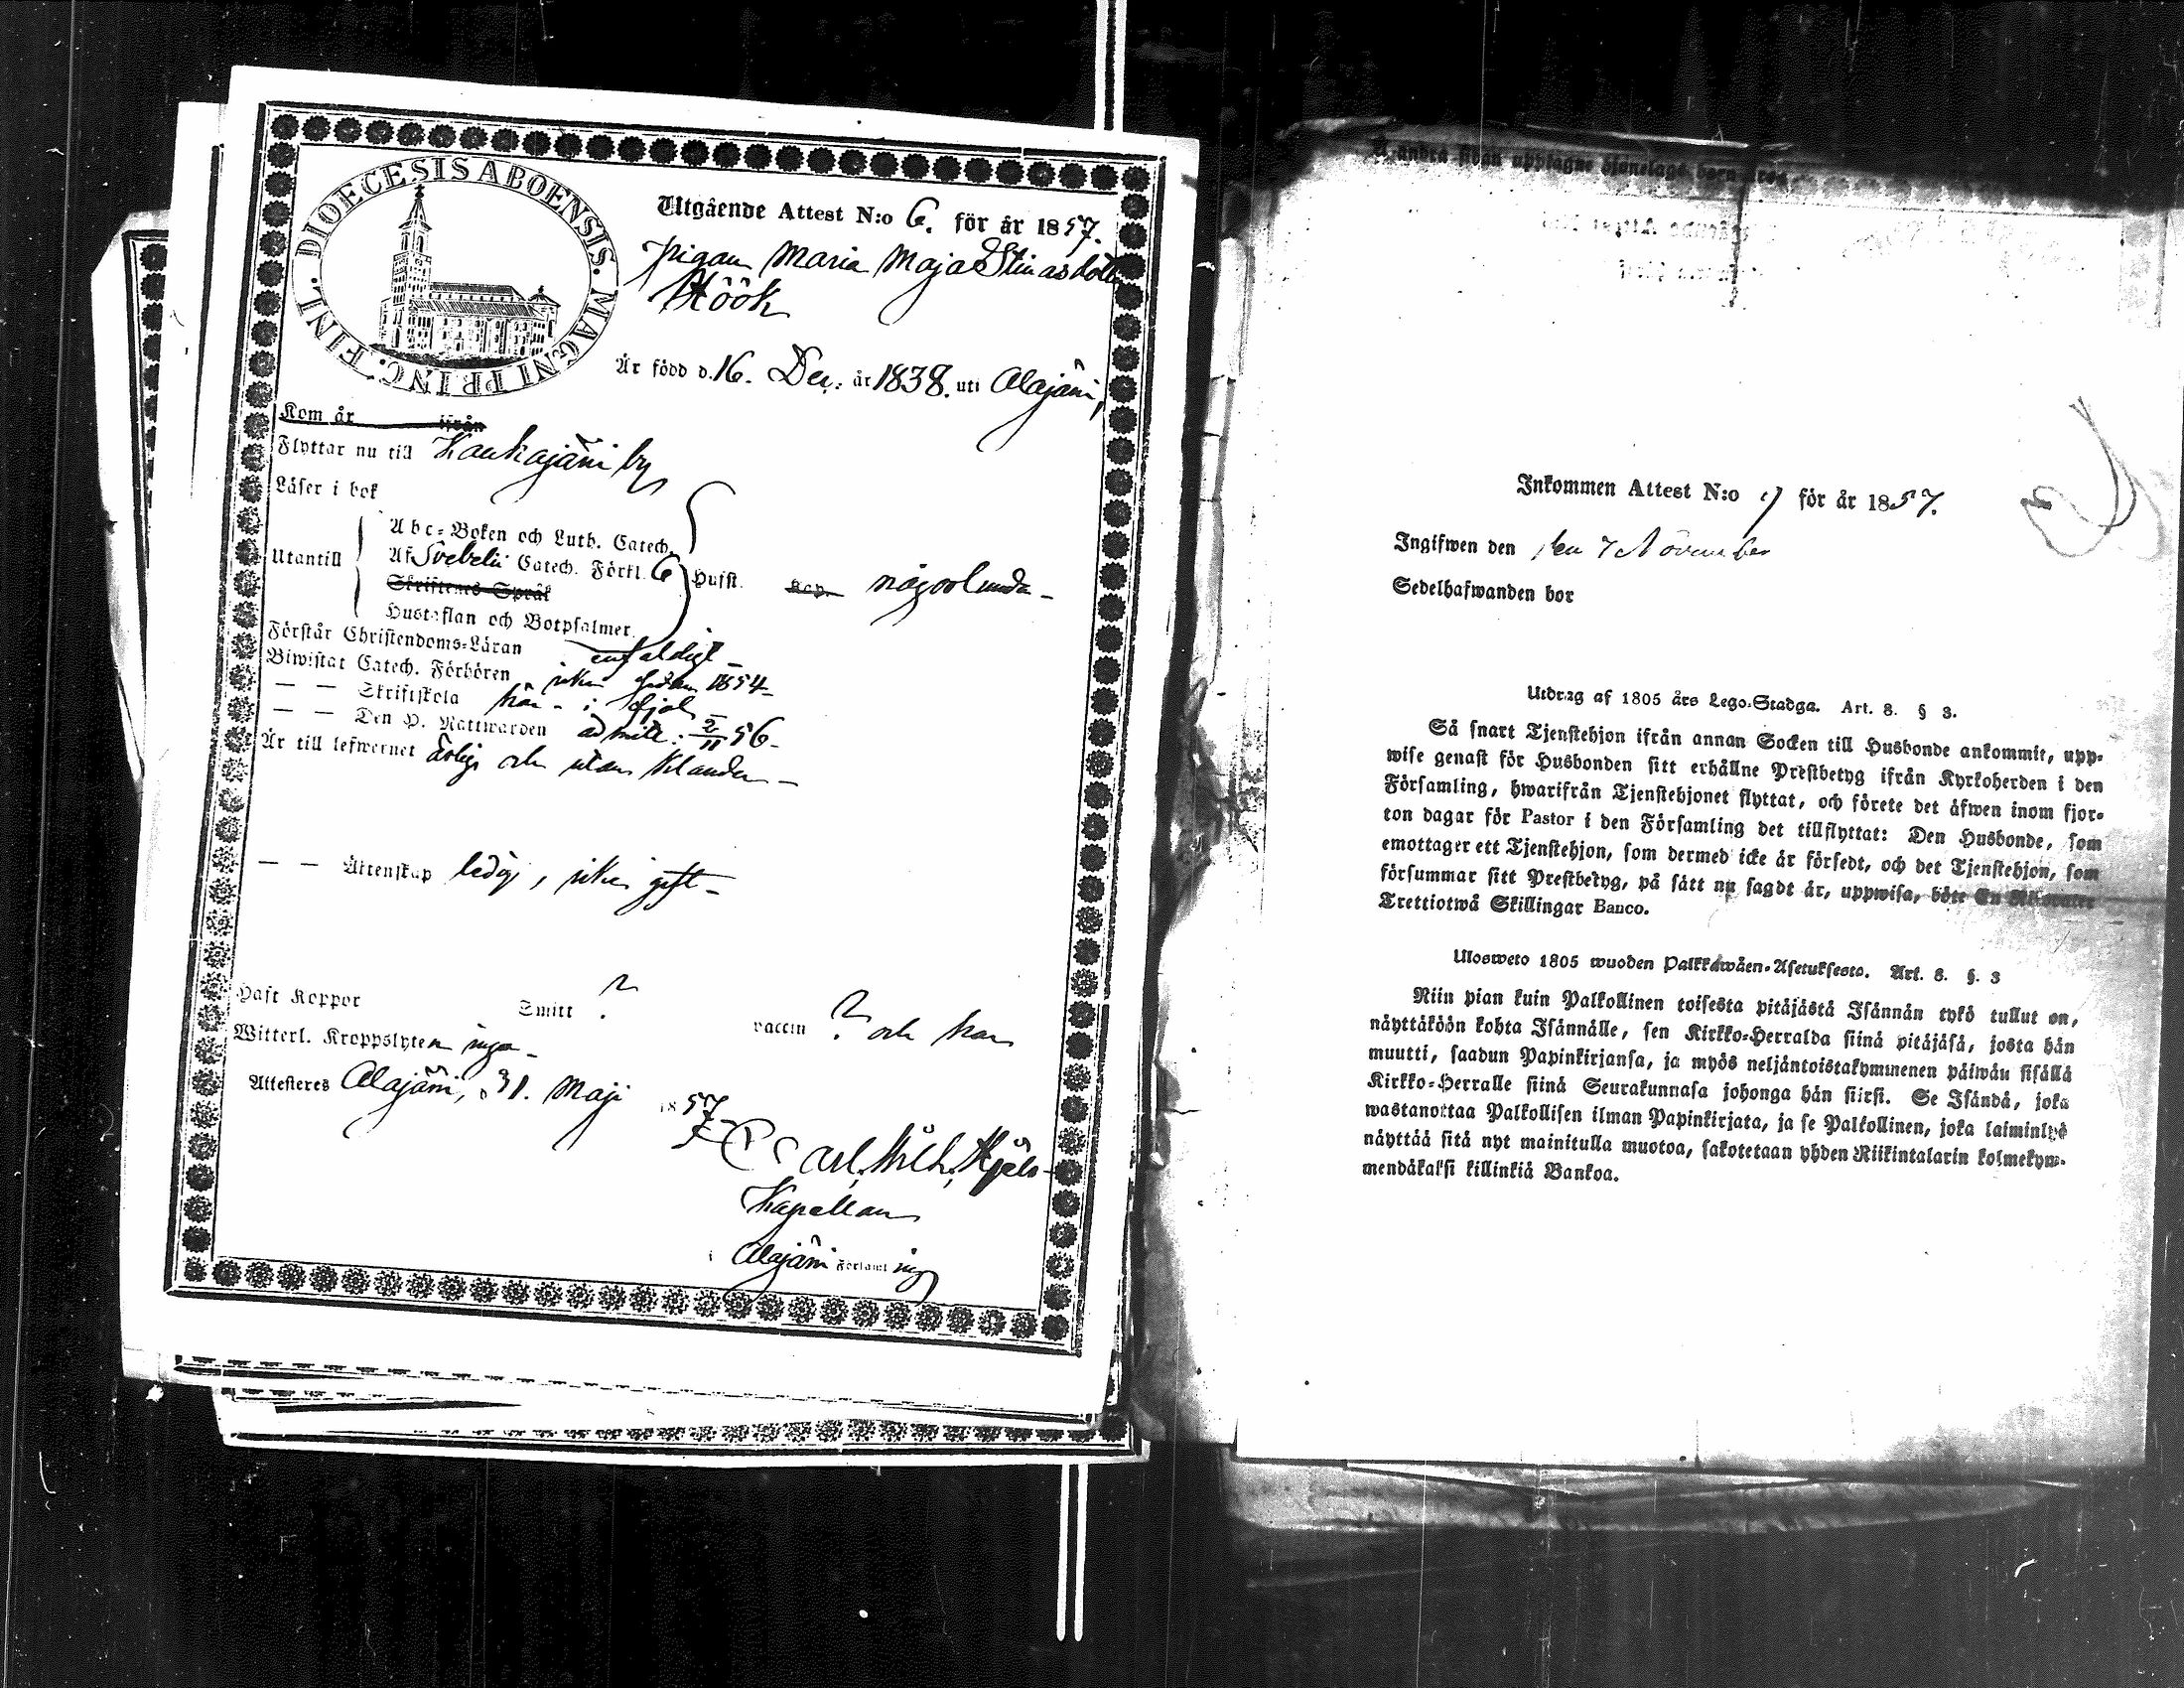 DIOECESIS ABOENSIS. MAGNI PRINC. FINL.
Utgående Attest N:o 6. för år 1857.
pigan Maria Maja Stinasdotter
Höök
Är född d. 16. Dec: år 1838. uti Alajärvi,
Kom år ifrån
Flyttar nu till Kaukajärvi by
Läser i bok
Utantill
Abc-Boken och Luth. Catech.
Af Svebelii Catech. Förkl. 6 Hufst. någorlunda -
Skriftenes Språk
Hustaflan och Botpsalmer.
Förstår Christendoms-Läran enfaldigt -
Biwistat Catech. Förhören sedan 1854 -
— — Skriftskola här - i fjol
— — Den H. Nattwarden admitt: 2/11 56 -
Är till lefwernet ärlig och utan klander -
— — Äktenskap ledig, gift -
Haft Koppor Smitt ? vaccin ? och har
Witterl. Kroppslyten inga -
Attesteres Alajärvi, d 31. Maji 1857
Carl Wilh.
Kapellan
i Alajärvi Församling
Inkommen Attest N:o 7 för år 1857.
Ingifwen den den 7 November
Sedelhafwanden bor
Utdrag af 1805 års Lego-Stadga. Art. 8. § 3.
Så snart Tjenstehjon ifrån annan Socken till Husbonde ankommit, upp-
wise genast för Husbonden sitt erhållne Prestbetyg ifrån Kyrkoherden i den
Församling, hwarifrån Tjenstehjonet flyttat, och förete det äfwen inom fjor-
ton dagar för Pastor i den Församling det tillflyttat: Den Husbonde, som
emottager ett Tjenstehjon, som dermed icke är försedt, och det Tjenstehjon, som
försummar sitt Prestbetyg, på sätt nu sagdt är, uppwisa, böte En Riksdaler
Trettiotwå Skillingar Banco.
Ulosweto 1805 wuoden Palkkawäen-Asetuksesta. Art. 8. §. 3
Niin pian kuin Palkollinen toisesta pitäjästä Isännän tykö tullut on,
näyttäköön kohta Isännälle, sen Kirkko-Herralda siinä pitäjäsä, josta hän
muutti, saadun Papinkirjansa, ja myös neljäntoistakymmenen päiwän sisällä
Kirkko-Herralle siinä Seurakunnasa johonga hän siirsi. Se Isändä, joka
wastanottaa Palkollisen ilman Papinkirjata, ja se Palkollinen, joka laiminlyö
näyttää sitä nyt mainitulla muotoa, sakotetaan yhden Riikintalarin kolmekym-
mendäkaksi killinkiä Bankoa.